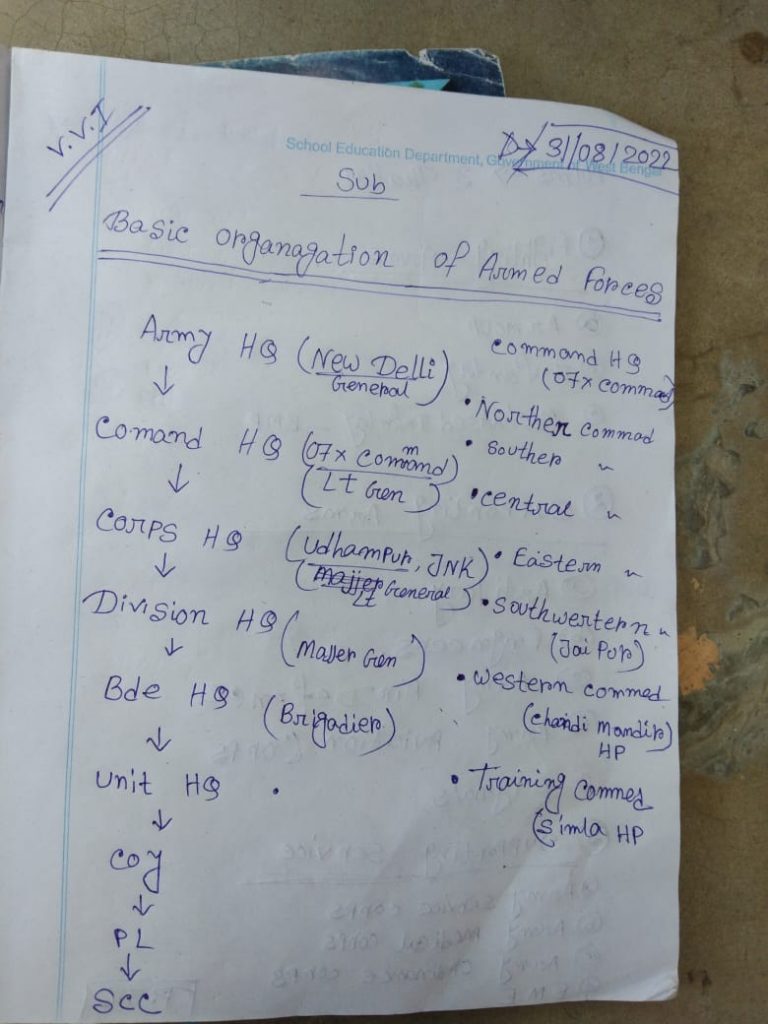 V.V.I
School Education Department, Government of West Bengal
Dt 31/08/2022
Sub
Basic organagation of Armed Forces
Army HQ (New Delli)
General
↓
Comand HQ (07x Command)
(Lt Gen)
↓
Corps HQ (Udhampur, JNK)
(Lt General)
↓
Division HQ (Majjer Gen)
↓
Bde HQ (Brigadier)
↓
Unit HQ .
↓
Coy
↓
PL
↓
Scc
Command HQ
(07x commad)
• Northern Commad
• Souther "
• Central "
• Eastern "
• Southwertern "
(Jai Pur)
• Western commed
(Chandi Mandir)
HP
• Training Commed
(Simla HP